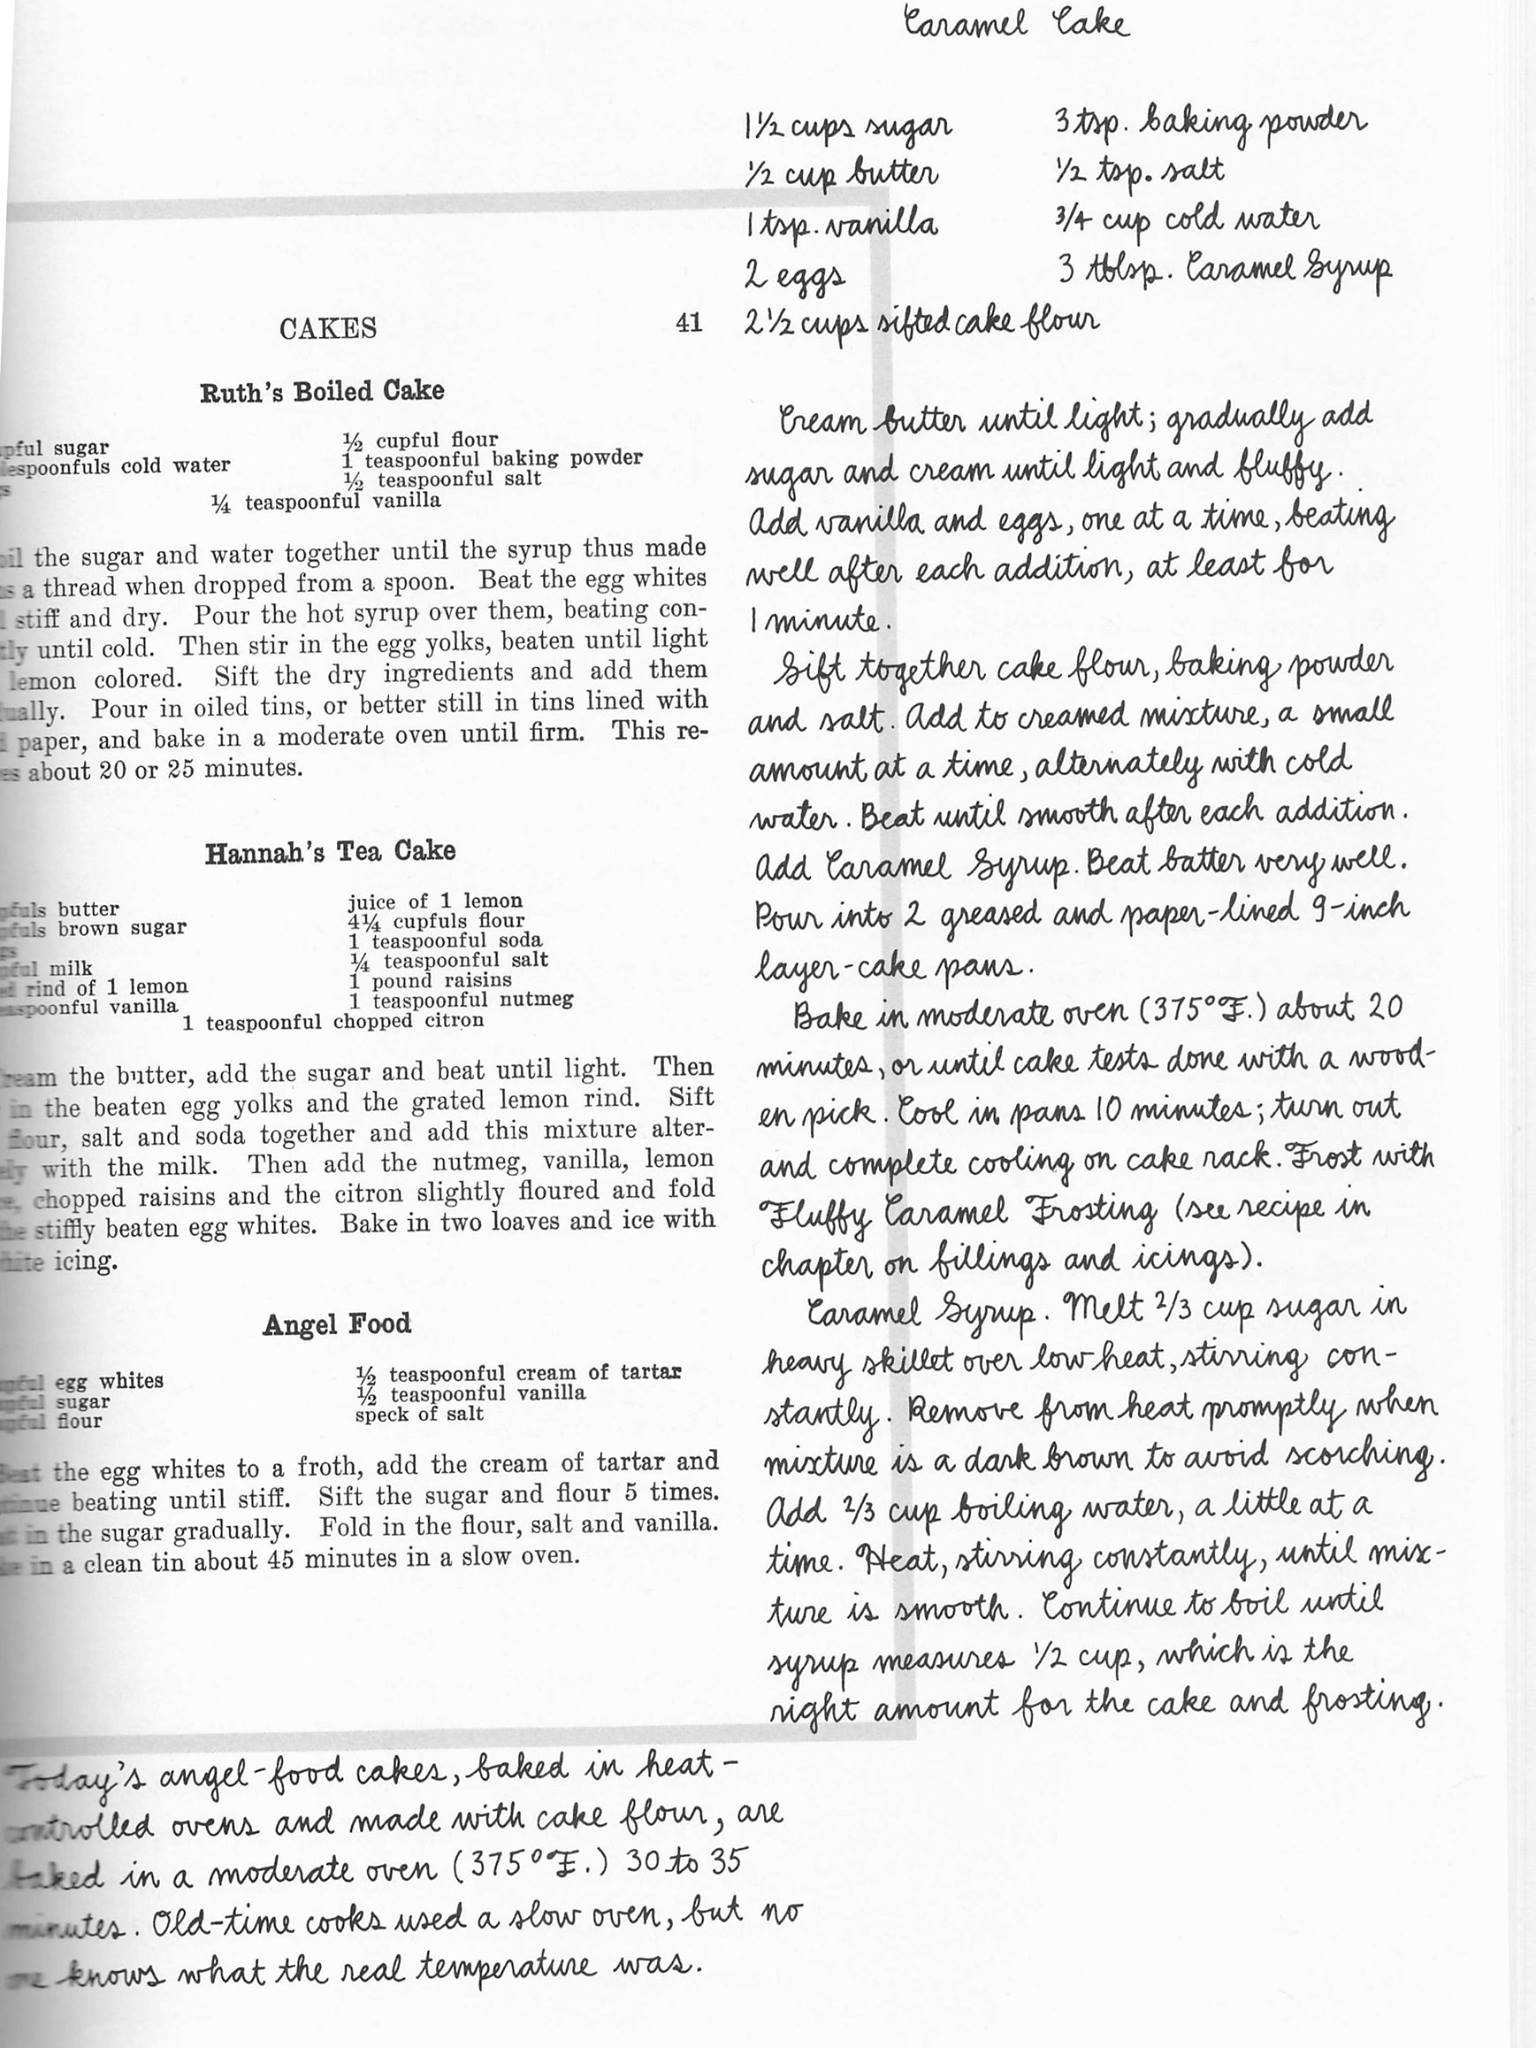 CAKES 41
Ruth's Boiled Cake
sugar
cold water
½ cupful flour
1 teaspoonful baking powder
½ teaspoonful salt
¼ teaspoonful vanilla
the sugar and water together until the syrup thus made
a thread when dropped from a spoon. Beat the egg whites
stiff and dry. Pour the hot syrup over them, beating con-
until cold. Then stir in the egg yolks, beaten until light
lemon colored. Sift the dry ingredients and add them
Pour in oiled tins, or better still in tins lined with
paper, and bake in a moderate oven until firm. This re-
about 20 or 25 minutes.
Hannah's Tea Cake
butter
brown sugar
milk
rind of 1 lemon
vanilla
juice of 1 lemon
4¼ cupfuls flour
1 teaspoonful soda
¼ teaspoonful salt
1 pound raisins
1 teaspoonful nutmeg
1 teaspoonful chopped citron
the butter, add the sugar and beat until light. Then
in the beaten egg yolks and the grated lemon rind. Sift
flour, salt and soda together and add this mixture alter-
with the milk. Then add the nutmeg, vanilla, lemon
chopped raisins and the citron slightly floured and fold
stiffly beaten egg whites. Bake in two loaves and ice with
icing.
Angel Food
egg whites
sugar
flour
½ teaspoonful cream of tartar
½ teaspoonful vanilla
speck of salt
Beat the egg whites to a froth, add the cream of tartar and
beating until stiff. Sift the sugar and flour 5 times.
in the sugar gradually. Fold in the flour, salt and vanilla.
in a clean tin about 45 minutes in a slow oven.
Today's angel-food cakes, baked in heat-
controlled ovens and made with cake flour, are
baked in a moderate oven (375°F.) 30 to 35
minutes. Old-time cooks used a slow oven, but no
one knows what the real temperature was.
Caramel Cake
1½ cups sugar
½ cup butter
1 tsp. vanilla
2 eggs
2½ cups sifted cake flour
3 tsp. baking powder
½ tsp. salt
¾ cup cold water
3 tblsp. Caramel Syrup
Cream butter until light; gradually add
sugar and cream until light and fluffy.
Add vanilla and eggs, one at a time, beating
well after each addition, at least for
1 minute.
Sift together cake flour, baking powder
and salt. Add to creamed mixture, a small
amount at a time, alternately with cold
water. Beat until smooth after each addition.
Add Caramel Syrup. Beat batter very well.
Pour into 2 greased and paper-lined 9-inch
layer-cake pans.
Bake in moderate oven (375°F.) about 20
minutes, or until cake tests done with a wood-
en pick. Cool in pans 10 minutes; turn out
and complete cooling on cake rack. Frost with
Fluffy Caramel Frosting (see recipe in
chapter on fillings and icings).
Caramel Syrup. Melt 2/3 cup sugar in
heavy skillet over low heat, stirring con-
stantly. Remove from heat promptly when
mixture is a dark brown to avoid scorching.
Add 2/3 cup boiling water, a little at a
time. Heat, stirring constantly, until mix-
ture is smooth. Continue to boil until
syrup measures ½ cup, which is the
right amount for the cake and frosting.